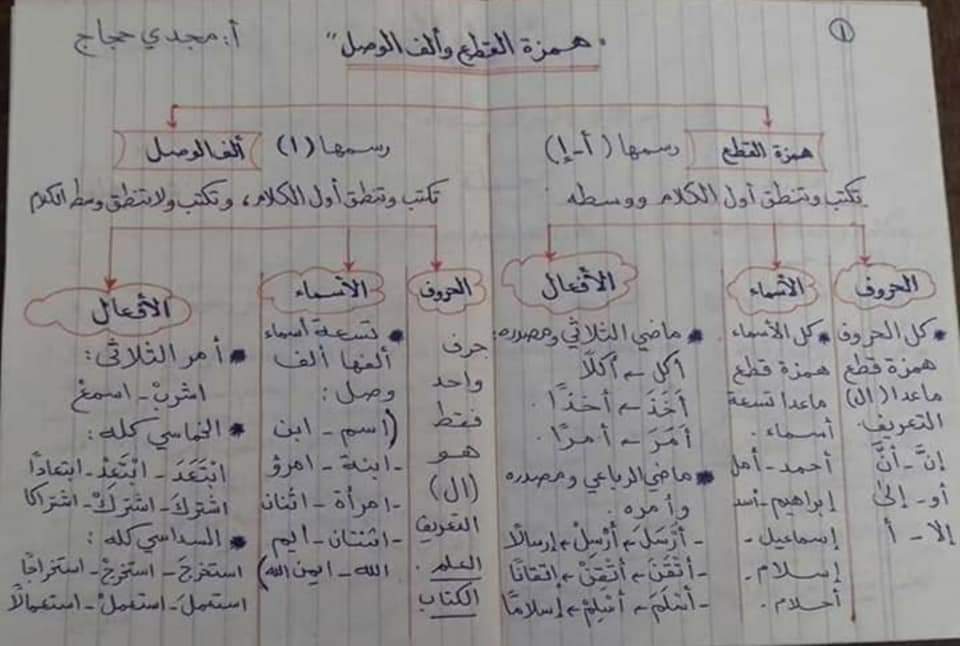 ١
"همزة القطع وألف الوصل"
أ: مجدي حجاج
همزة القطع
رسمها (أ-إ)
تكتب وتنطق أول الكلام ووسطه
الحروف
كل الحروف
همزة قطع
ماعدا (ال)
التعريف.
إنَّ - أنَّ
أو - إلىٰ
إلا - أ
الأسماء
كل الأسماء
همزة قطع
ماعدا تسعة
أسماء.
أحمد - أمل
إبراهيم - أسد
إسماعيل -
إسلام -
أحلام.
الأفعال
ماضي الثلاثي ومصدره:
أكل ← أكلًا
أخَذَ ← أخذًا.
أمَرَ ← أمرًا.
ماضي الرباعي ومصدره
وأمره:
- أرْسَلَ ← أرْسِلْ ← إرسالًا
- أتْقَنَ ← أتْقِنْ ← إتقانًا
- أسْلَمَ ← أسْلِمْ ← إسلامًا
ألف الوصل
رسمها (ا)
تكتب وتنطق أول الكلام، وتكتب ولا تنطق وسط الكلام
الحروف
حرف
واحد
فقط
هو
(ال)
التعريف
العلم.
الكتاب
الأسماء
تسعة أسماء
ألفها ألف
وصل:
(اسم - ابن
- ابنة - امرؤ
- امرأة - اثنان
- اثنتان - ايم
الله - ايمن الله)
الأفعال
أمر الثلاثى:
اشربْ - اسمعْ
الخماسي كله:
ابْتَعَدَ - ابْتَعَدْ - ابتعادًا
اشتركَ - اشتركْ - اشتراكا
السداسي كله:
استخرجَ - استخرجْ - استخراجًا
استعملَ - استعملْ - استعمالًا